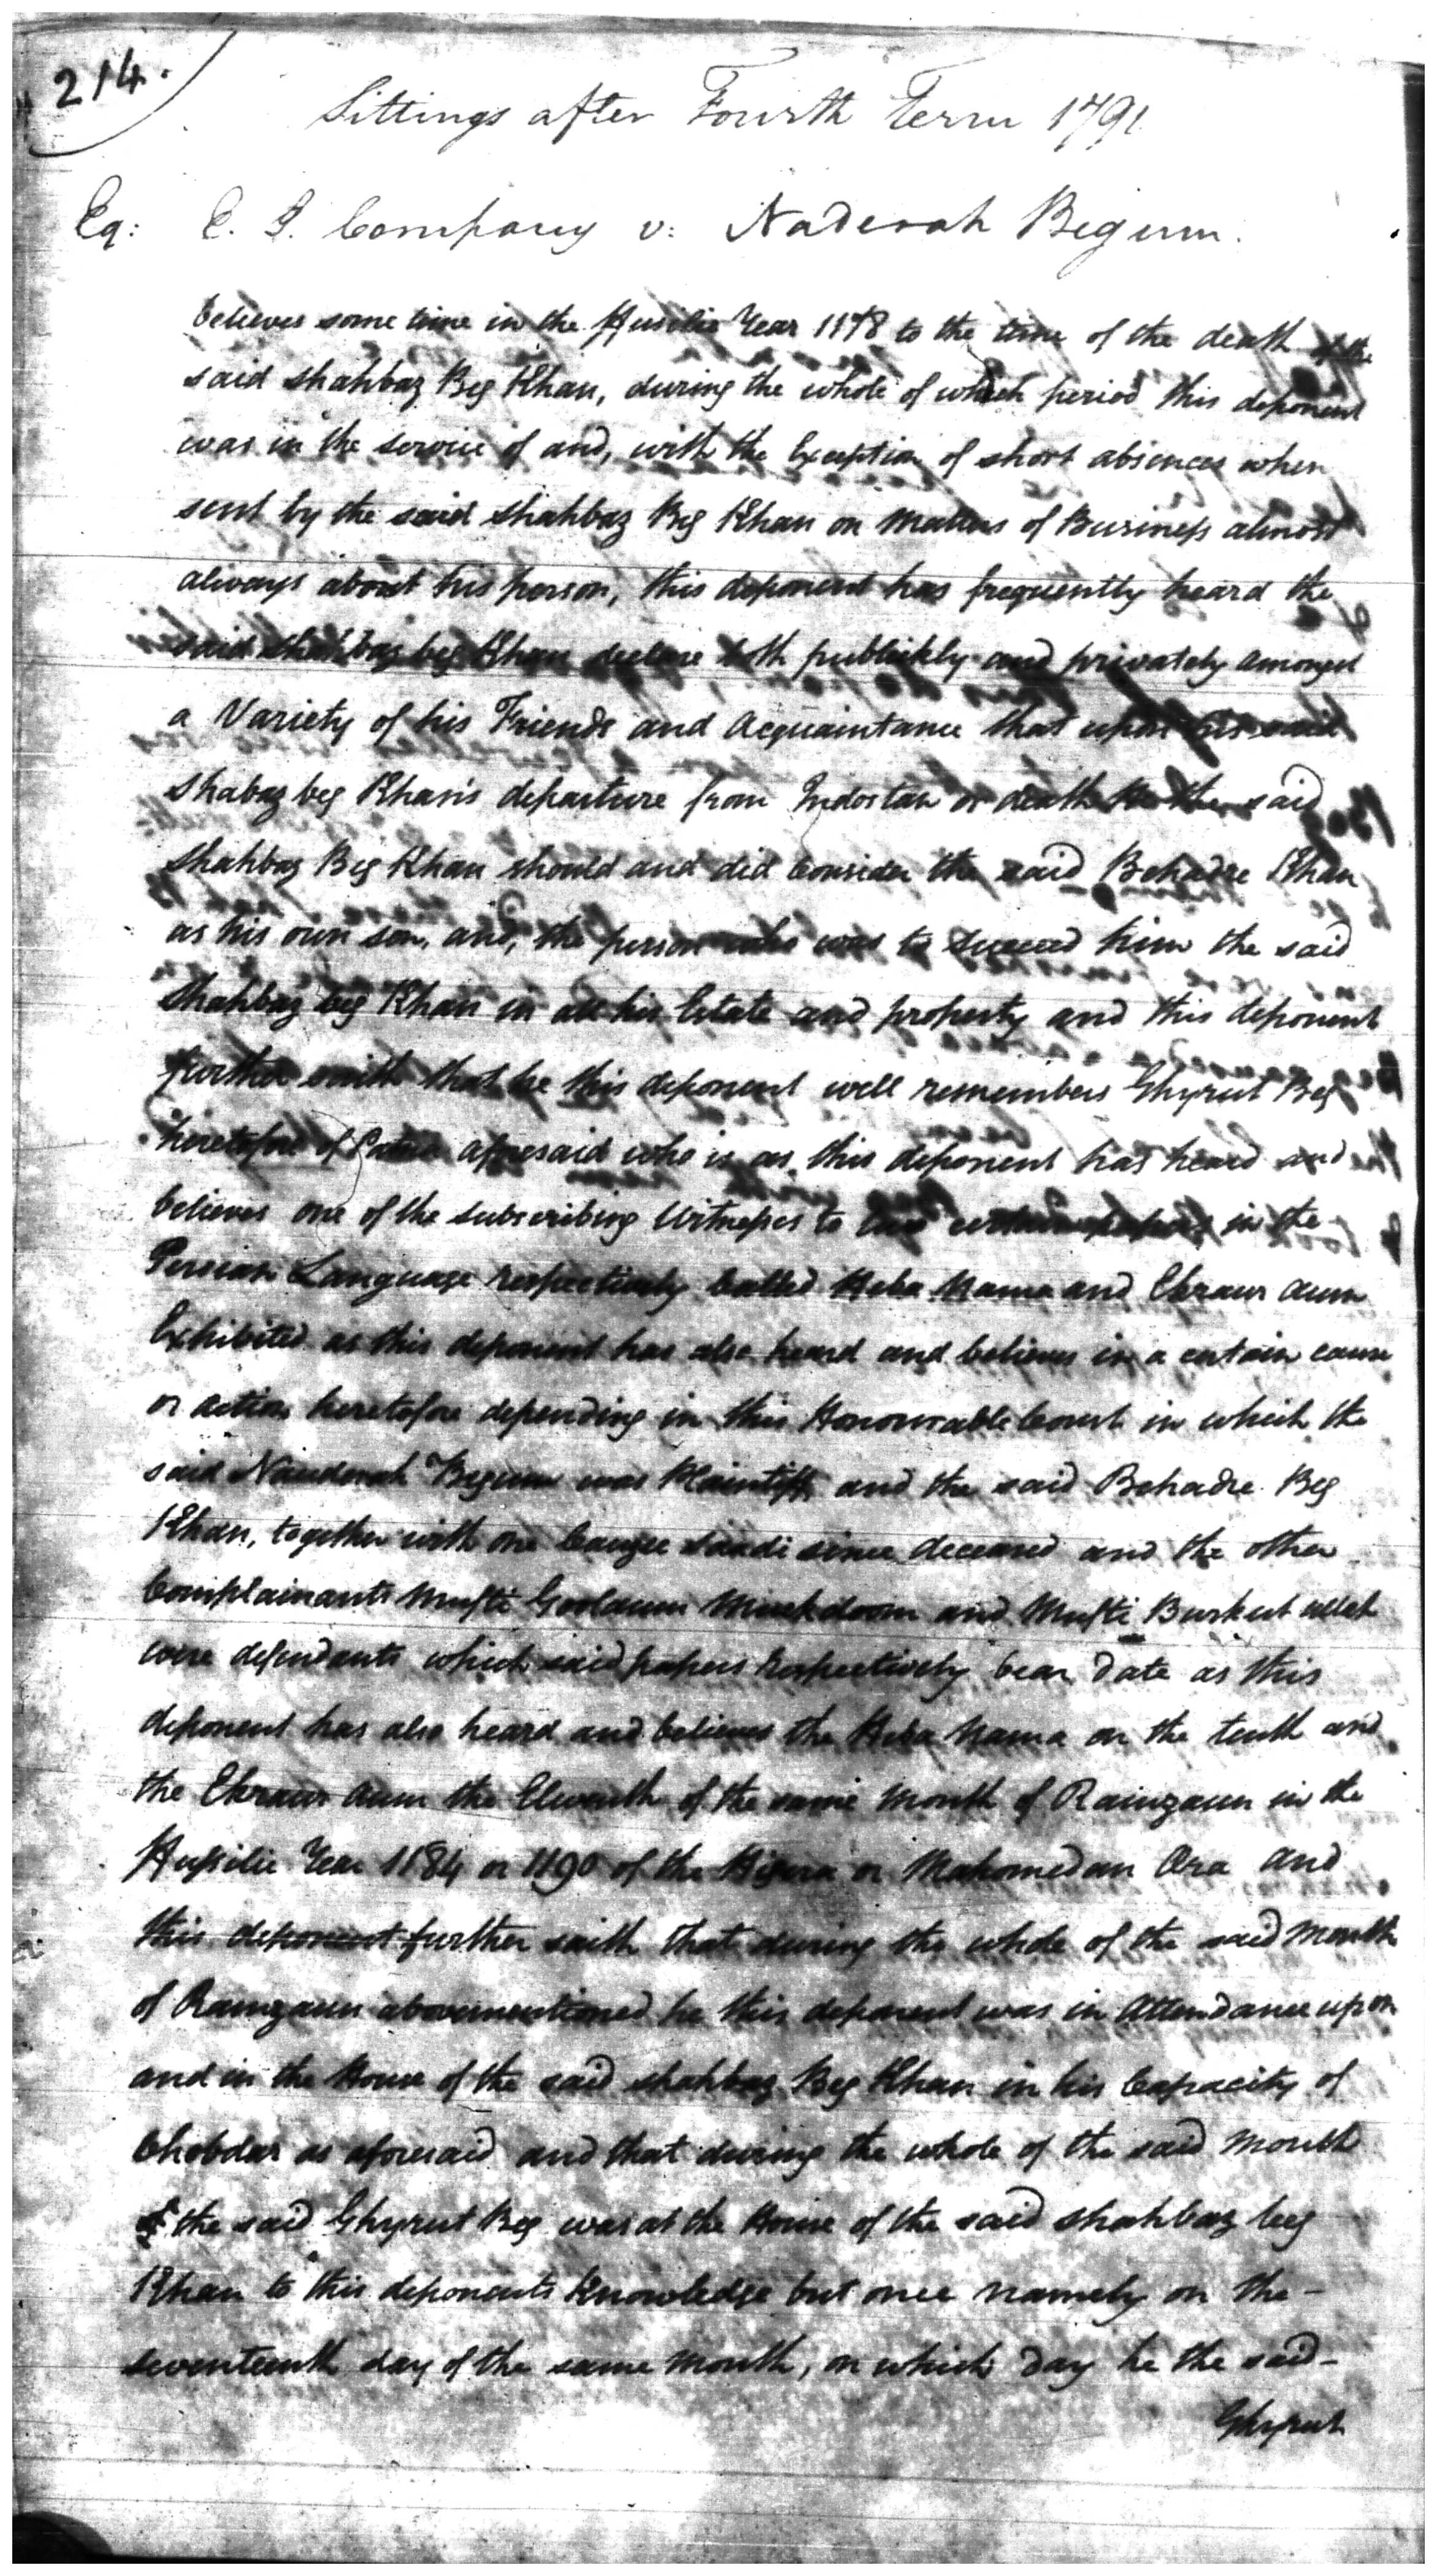 214.
Sittings after Fourth Term 1791
Eq: E. I. Company v: Naderah Begum.
believes some time in the Fusilie Year 1178 to the time of the death of the
said Shahbaz Beg Khan, during the whole of which period this deponent
was in the service of and, with the Exception of short absences when
sent by the said Shahbaz Beg Khan on Matters of Business almost
always about his person, this deponent has frequently heard the
said Shahbaz beg Khan declare both publickly and privately amongst
a Variety of his Friends and Acquaintance that upon his said
Shabaz beg Khan's departure from Indostan or death he the said
Shahbaz Beg Khan should and did Consider the said Behadre Khan
as his own son, and, the person who was to succeed him the said
Shahbaz beg Khan in all his Estate and property and this deponent
further saith that he this deponent well remembers Ghyrut Beg
heretofore of Patna aforesaid who is as this deponent has heard and
believes one of the subscribing Witnesses to two certain papers in the
Persian Language respectively Called Heba Nama and Ekraur aum
Exhibited as this deponent has also heard and believes in a certain cause
or action heretofore depending in this Honourable Court in which the
said Nauderah Begum was Plaintiff and the said Behadre Beg
Khan, together with one Cauzee Saadi since deceased and the other
Complainants Mufti Goolaum Muckdoom and Mufti Burkut ullah
were defendants which said papers respectively bear date as this
deponent has also heard and believes the Heba Nama on the tenth and
the Ekraur aum the Eleventh of the same Month of Ramzaun in the
Fussilie Year 1184 or 1190 of the Higera or Mahomedan Æra and
this deponent further saith that during the whole of the said Month
of Ramzaun abovementioned he this deponent was in Attendance upon
and in the House of the said Shahbaz Beg Khan in his Capacity of
Chobdar as aforesaid and that during the whole of the said Month
the said Ghyrut Beg was at the House of the said Shahbaz beg
Khan to this deponents Knowledge but once namely on the -
seventeenth day of the same Month, on which day he the said -
Ghyrut